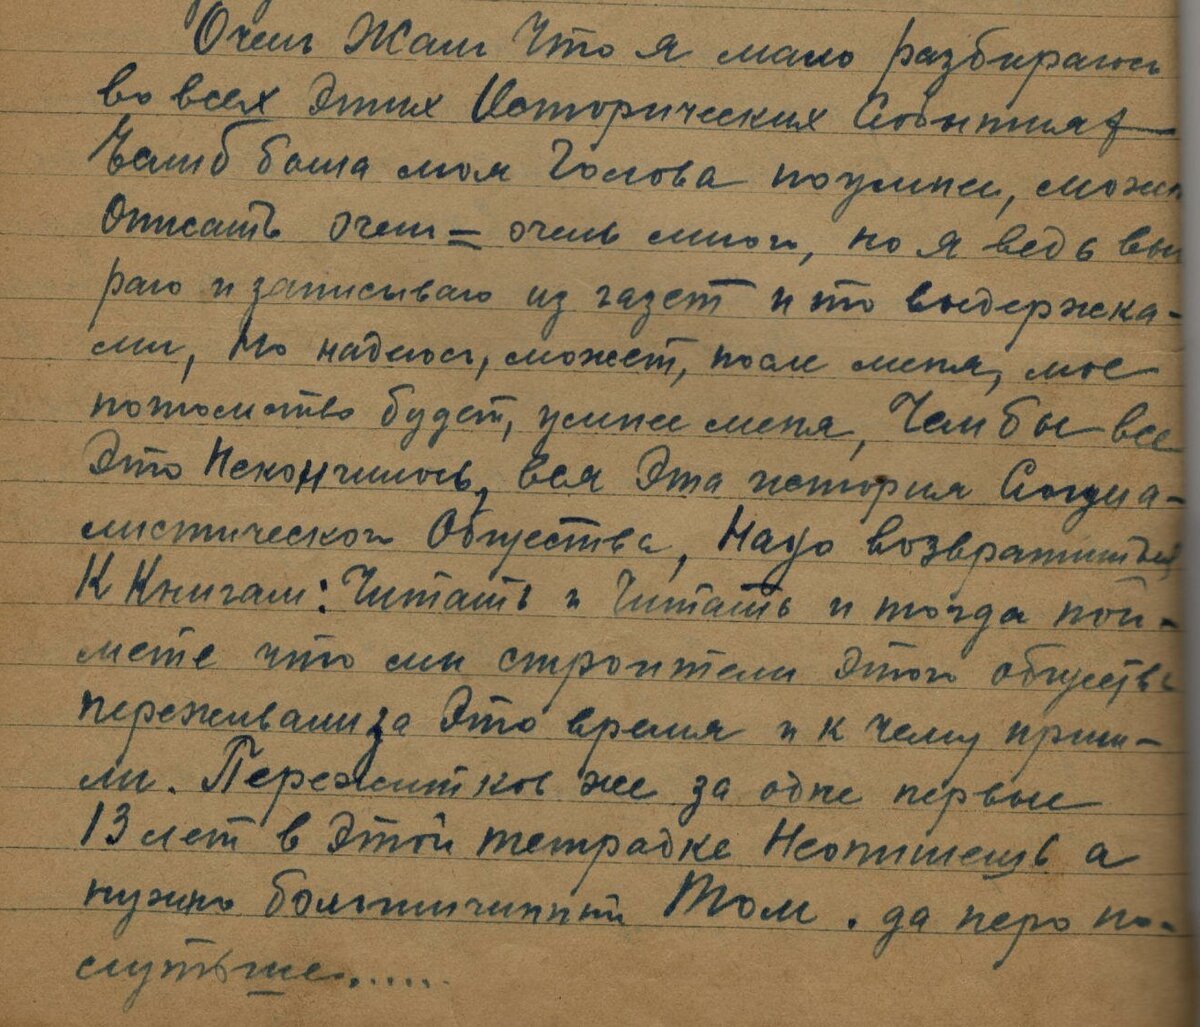 Очень Жаль Что я мало разбираюсь
во всех Этих Исторических Событиях
Ежлиб была моя Голова поумнее, можно
Описать очень = очень много, но я ведь вы
раю и записываю из газет и то выдержка-
ми, Но надеюсь, может, после меня, мое
потомство будет, умнее меня, Чем бы все
Это Некончилось, вся Эта история Социа-
листического Общества, Надо возвратиться
К Книгам: Читать и Читать и тогда пой-
мете что мы строители Этого общества
переживали за Это время и к чему приш-
ли. Пережитков же за одне первые
13 лет в Этой тетрадке Неопишешь а
нужно большичинный Том. да перо по-